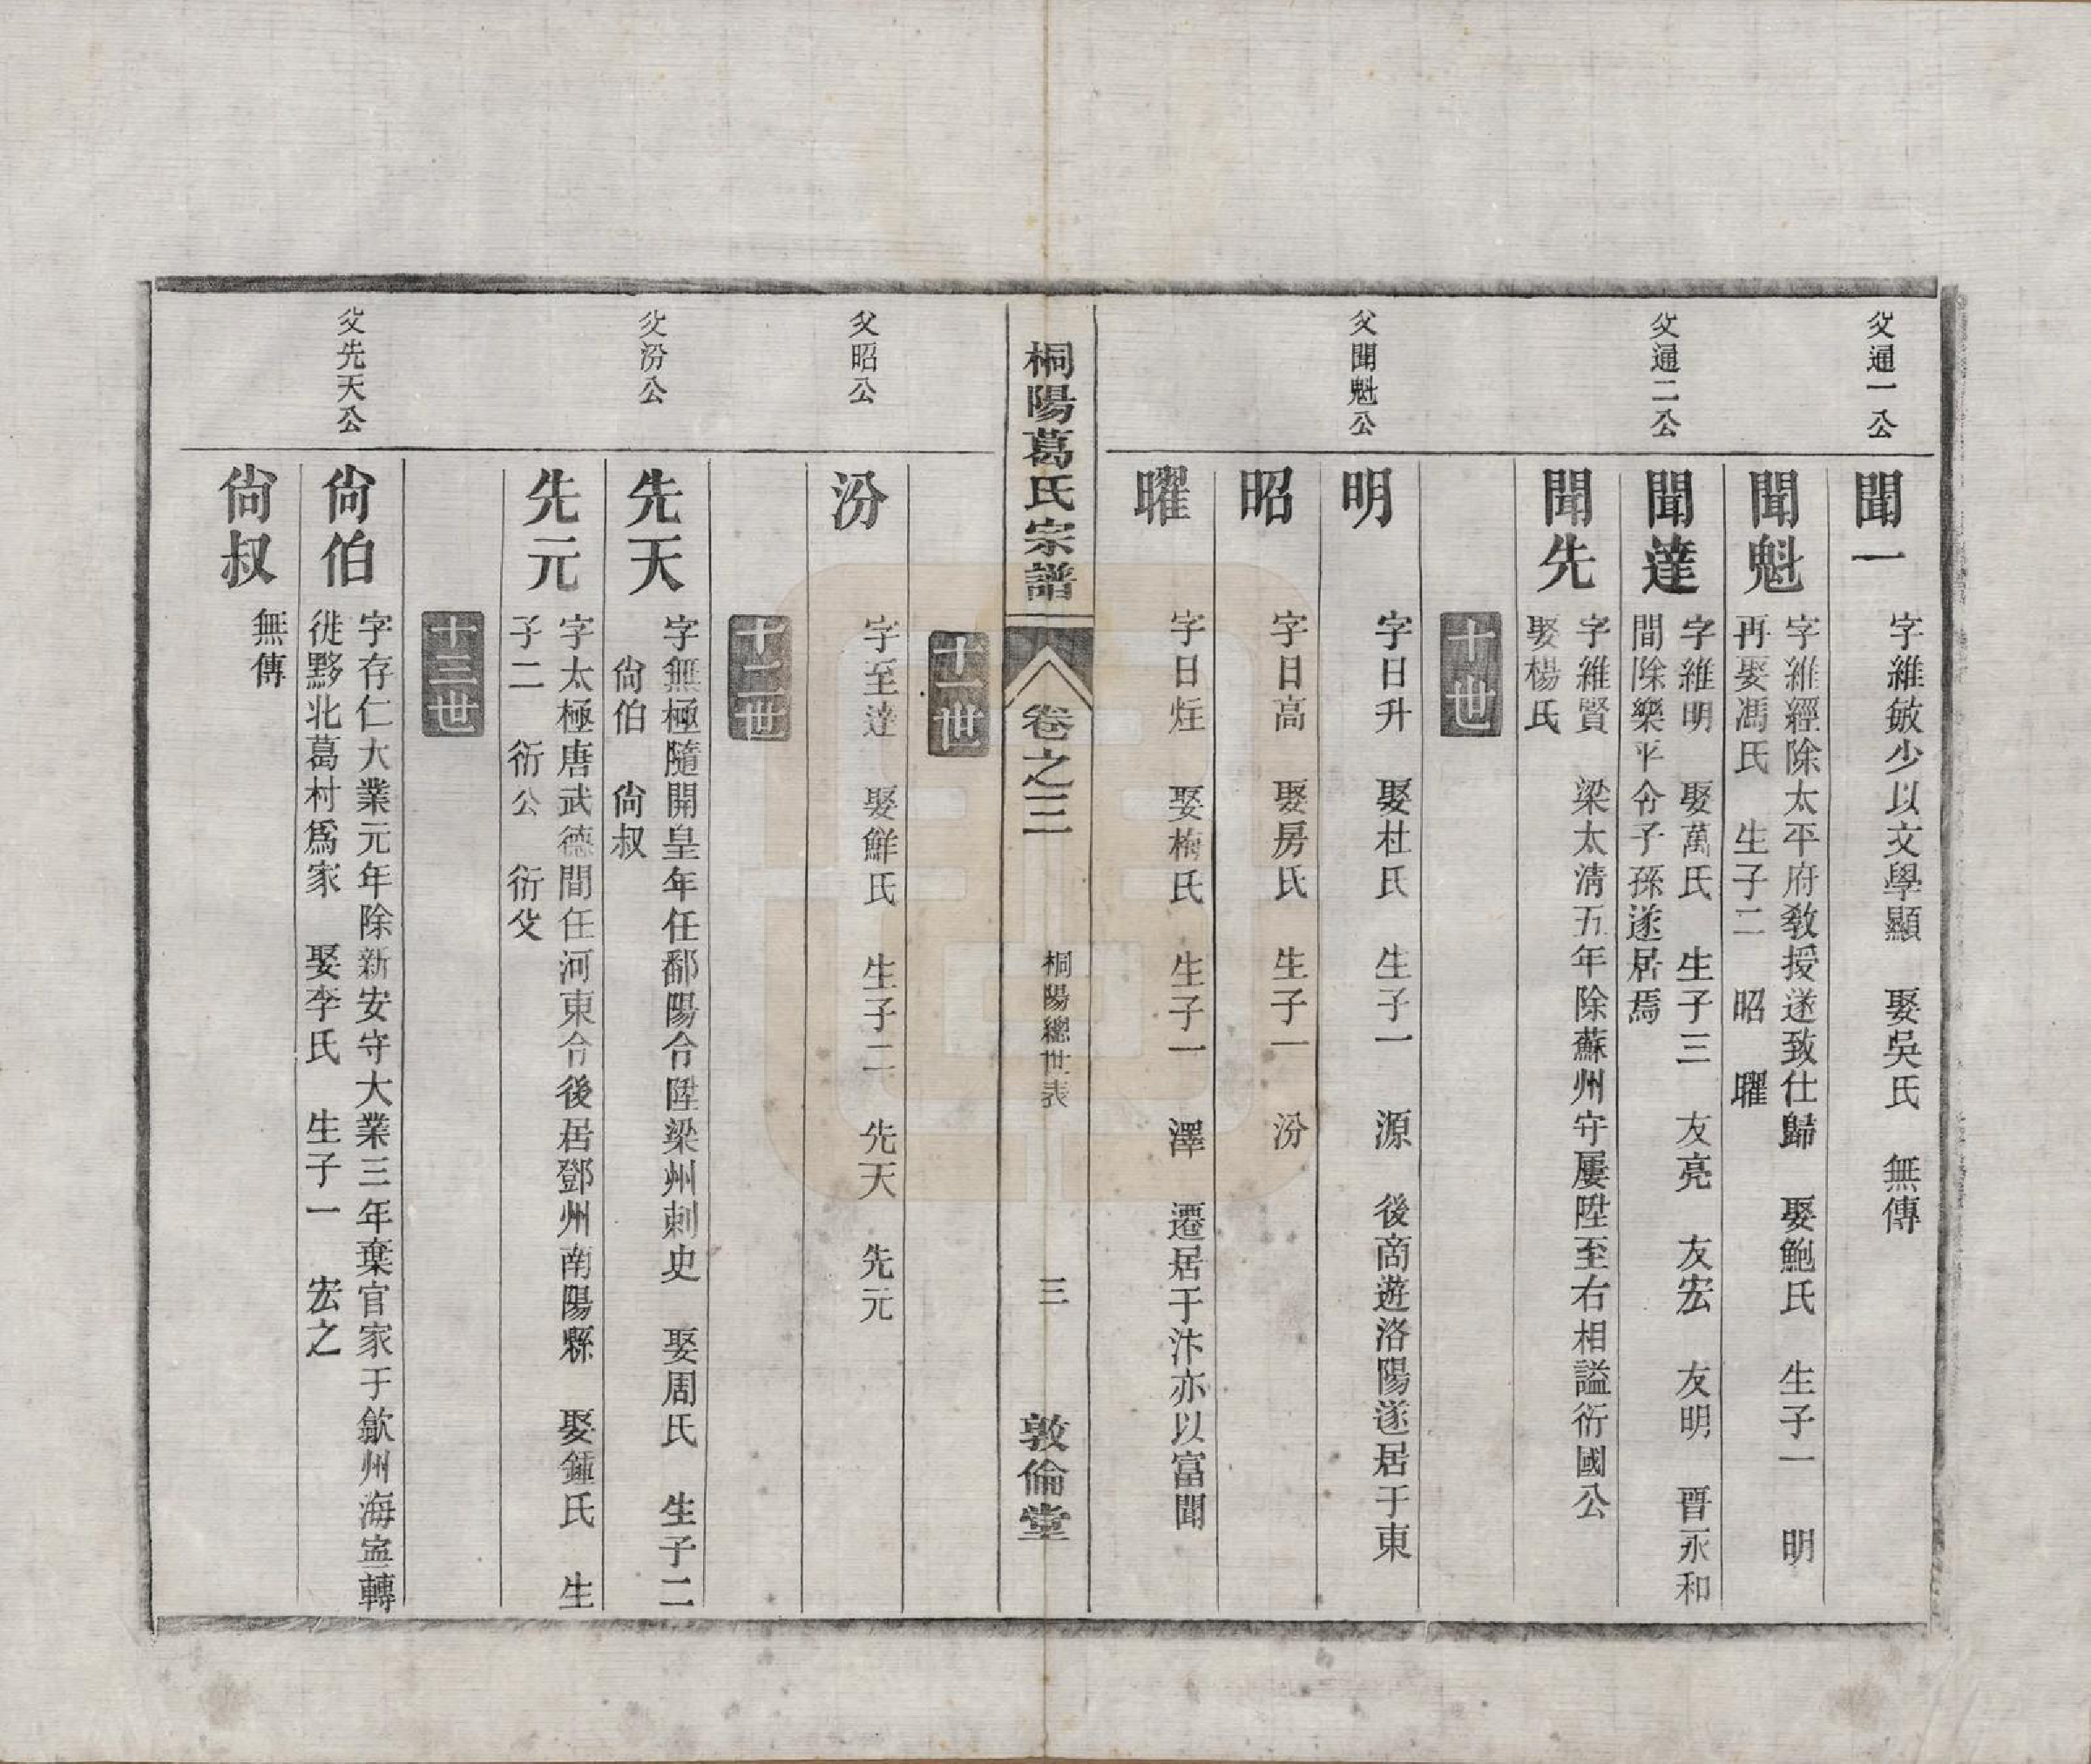 父通一公
聞一
字維敏少以文學顯　娶吳氏　無傳
聞魁
字維經除太平府教授遂致仕歸　娶鮑氏　生子一　明
再娶馮氏　生子二　昭　曜
父通二公
聞達
字維明　娶萬氏　生子三　友亮　友宏　友明　晋永和
間除樂平令子孫遂居焉
聞先
字維賢　梁太清五年除蘇州守屢陞至右相謚衍國公
娶楊氏
十世
父聞魁公
明
字日升　娶杜氏　生子一　源　後商遊洛陽遂居于東
昭
字日高　娶房氏　生子一　汾
曜
字日炷　娶梅氏　生子一　澤　遷居于汴亦以富聞
桐陽葛氏宗譜
卷之三
桐陽總世表
三
敦倫堂
十一世
父昭公
汾
字至達　娶鮮氏　生子二　先天　先元
十二世
父汾公
先天
字無極隨開皇年任鄱陽令陞梁州刺史　娶周氏　生子二
尙伯　尙叔
先元
字太極唐武德間任河東令後居鄧州南陽縣　娶鍾氏　生
子二　衍公　衍父
十三世
父先天公
尙伯
字存仁大業元年除新安守大業三年棄官家于歙州海寍轉
徙黟北葛村爲家　娶李氏　生子一　宏之
尙叔
無傳